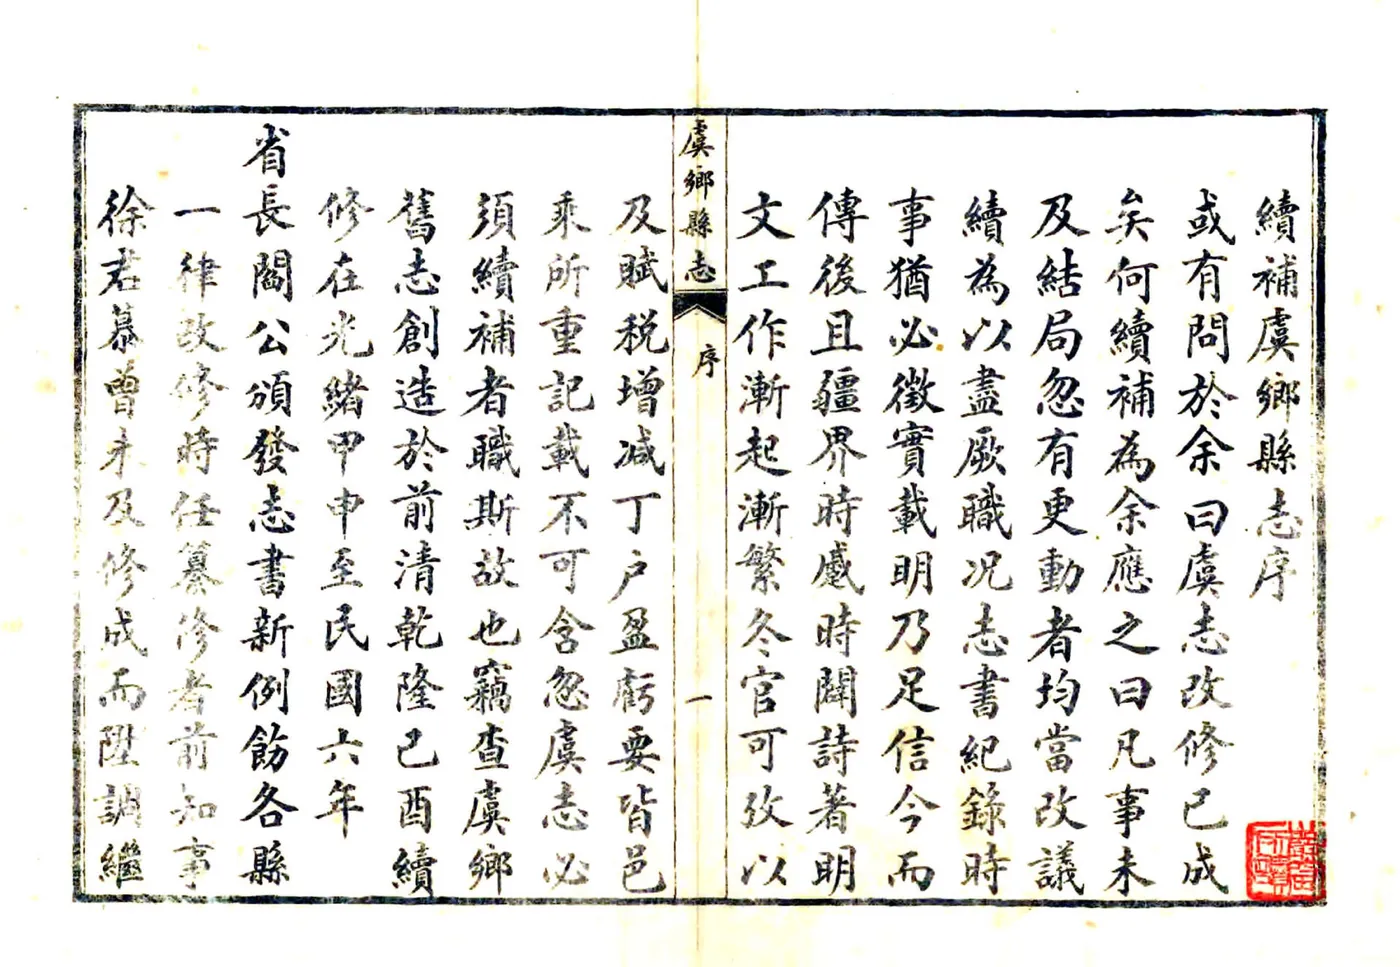 續補虞鄉縣志序
或有問於余曰虞志改修已成
矣何續補為余應之曰凡事未
及結局忽有更動者均當改議
續為以盡厥職况志書紀錄時
事猶必徵實載明乃足信今而
傳後且疆界時慼時闢詩著明
文工作漸起漸繁冬官可攷以
虞鄉縣志
序
一
及賦税增减丁户盈虧要皆邑
乘所重記載不可含忽虞志必
須續補者職斯故也竊查虞鄉
舊志創造於前清乾隆己酉續
修在光緒甲申至民國六年
省長閻公頒發志書新例飭各縣
一律改修時任纂修者前知事
徐君慕曾未及修成而陞調繼